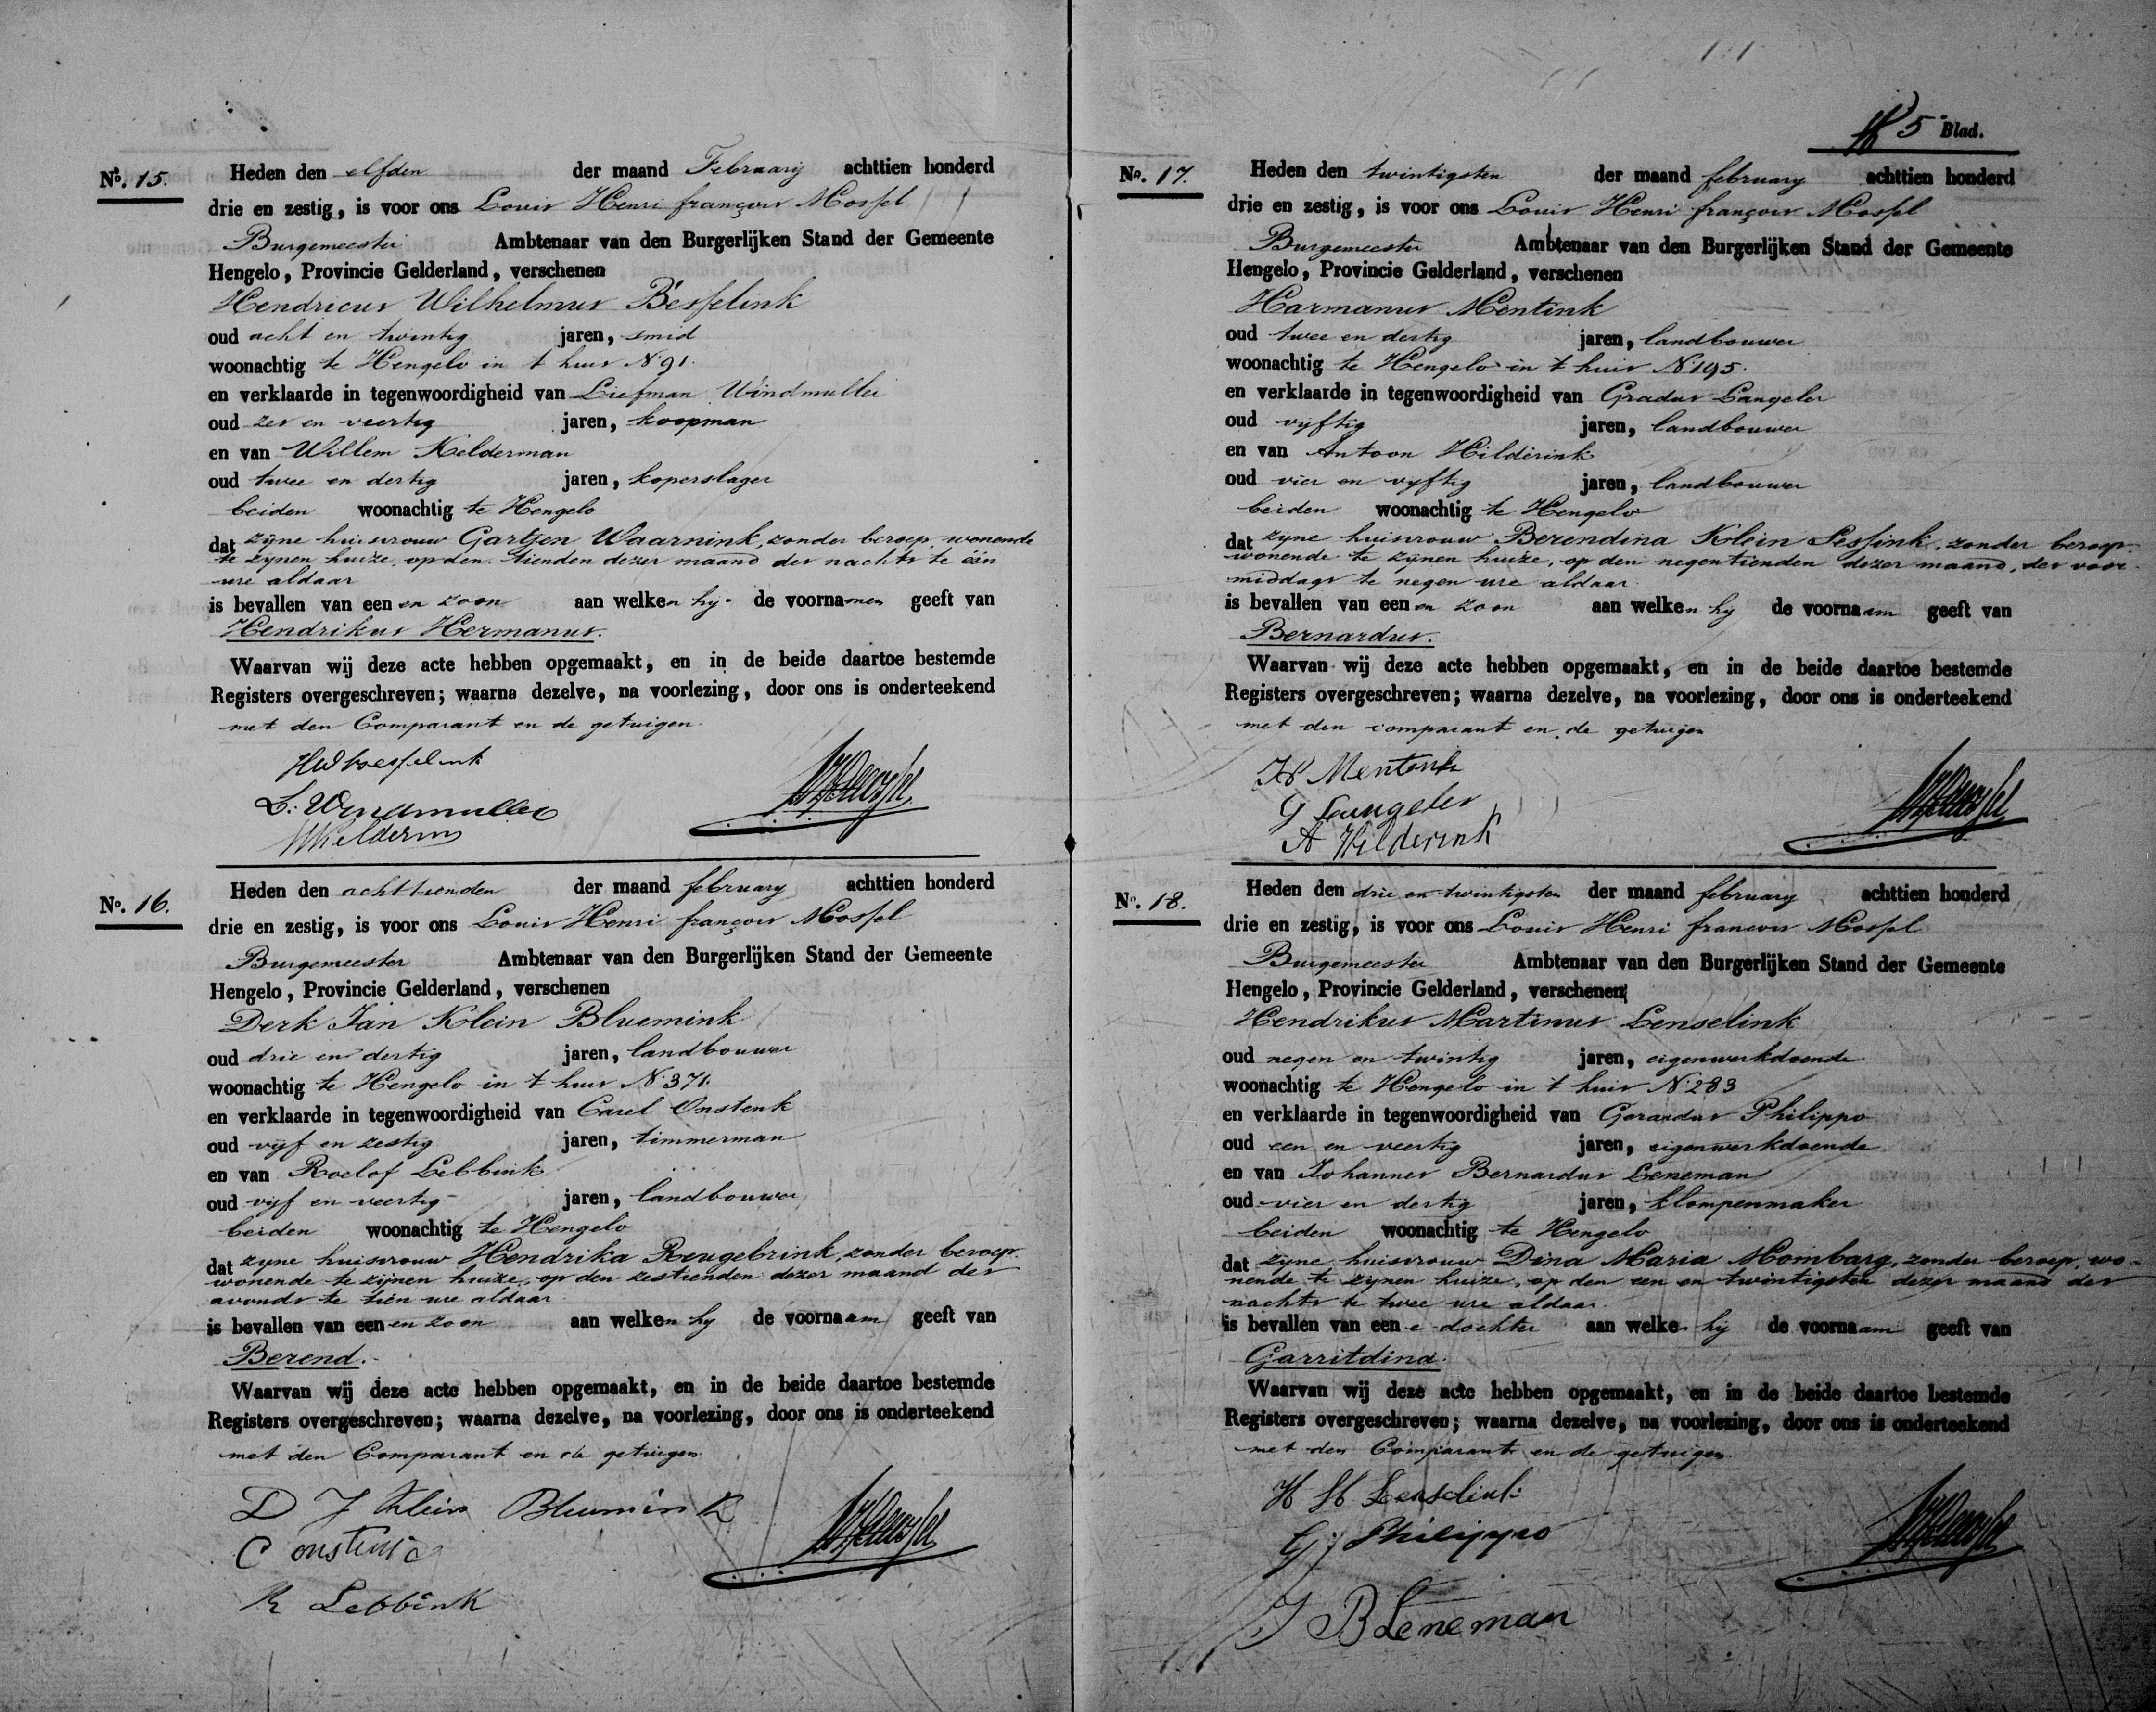 No. 15.
Heden den elfden der maand Februarij achttien honderd
drie en zestig, is voor ons Louis Henri françois Mossel
Burgemeester Ambtenaar van den Burgerlijken Stand der Gemeente
Hengelo, Provincie Gelderland, verschenen
Hendricus Wilhelmus Besselink
oud acht en twintig jaren, smid
woonachtig te Hengelo in 't huis No 91.
en verklaarde in tegenwoordigheid van Liefman Windmuller
oud zes en veertig jaren, koopman
en van Willem Kelderman
oud twee en dertig jaren, koperslager
beiden woonachtig te Hengelo
dat zijne huisvrouw Gartjen Waarnink, zonder beroep, wonende
te zijnen huize, op den tienden dezer maand des nachts te één
ure aldaar
is bevallen van een en zoon aan welken hij de voornamen geeft van
Hendrikus Hermanus.
Waarvan wij deze acte hebben opgemaakt, en in de beide daartoe bestemde
Registers overgeschreven; waarna dezelve, na voorlezing, door ons is onderteekend
met den Comparant en de getuigen.
HWBesselink
L: Windmuller
WKelderm
No. 16.
Heden den achttienden der maand february achttien honderd
drie en zestig, is voor ons Louis Henri françois Mossel
Burgemeester Ambtenaar van den Burgerlijken Stand der Gemeente
Hengelo, Provincie Gelderland, verschenen
Derk Jan Klein Bluemink
oud drie en dertig jaren, landbouwer
woonachtig te Hengelo in 't huis No 371.
en verklaarde in tegenwoordigheid van Carel Onstenk
oud vijf en zestig jaren, timmerman
en van Roelof Lebbink
oud vijf en veertig jaren, landbouwer
beiden woonachtig te Hengelo
dat zyne huisvrouw Hendrika Reugebrink, zonder beroep,
wonende te zijnen huize, op den zestienden dezer maand des
avonds te tien ure aldaar
is bevallen van een en zoon aan welken hy de voornaam geeft van
Berend.
Waarvan wij deze acte hebben opgemaakt, en in de beide daartoe bestemde
Registers overgeschreven; waarna dezelve, na voorlezing, door ons is onderteekend
met den Comparant en de getuigen
D J Klein Bluemink
C onstenk
R Lebbink
5e Blad.
No. 17.
Heden den twintigsten der maand february achttien honderd
drie en zestig, is voor ons Louis Henri françois Mossel
Burgemeester Ambtenaar van den Burgerlijken Stand der Gemeente
Hengelo, Provincie Gelderland, verschenen
Harmanus Mentink
oud twee en dertig jaren, landbouwer
woonachtig te Hengelo in 't huis No 195.
en verklaarde in tegenwoordigheid van Gradus Langeler
oud vyftig jaren, landbouwer
en van Antoon Hilderink
oud vier en vyftig jaren, landbouwer
beiden woonachtig te Hengelo
dat zyne huisvrouw Berendina Klein Lessink, zonder beroep,
wonende te zijnen huize, op den negentienden dezer maand, des voor-
middags te negen ure aldaar
is bevallen van een en zoon aan welken hy de voornaam geeft van
Bernardus.
Waarvan wij deze acte hebben opgemaakt, en in de beide daartoe bestemde
Registers overgeschreven; waarna dezelve, na voorlezing, door ons is onderteekend
met den comparant en de getuigen
H Mentink
G Langeler
A Hilderink
No. 18.
Heden den drie en twintigsten der maand february achttien honderd
drie en zestig, is voor ons Louis Henri francois Mossel
Burgemeester Ambtenaar van den Burgerlijken Stand der Gemeente
Hengelo, Provincie Gelderland, verschenen
Hendrikus Martinus Lenselink
oud negen en twintig jaren, eigenwerkdoende
woonachtig te Hengelo in 't huis No 283
en verklaarde in tegenwoordigheid van Gerardus Philippo
oud een en veertig jaren, eigenwerkdoende
en van Johannes Bernardus Leneman
oud vier en dertig jaren, klompenmaker
beiden woonachtig te Hengelo
dat zyne huisvrouw Dina Maria Mombarg, zonder beroep, wo-
nende te zijnen huize, op den een en twintigsten dezer maand des
nachts te twee ure aldaar.
is bevallen van een e dochter aan welke hij de voornaam geeft van
Garritdina.
Waarvan wij deze acte hebben opgemaakt, en in de beide daartoe bestemde
Registers overgeschreven; waarna dezelve, na voorlezing, door ons is onderteekend
met den Comparant en de getuigen
H M Lenselink
G: Philippo
J B Leneman